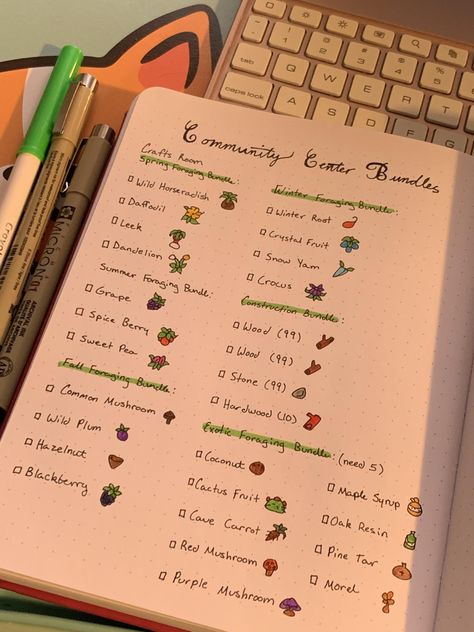 Community Center Bundles
Crafts Room
Spring Foraging Bundle:
☐ Wild Horseradish
☐ Daffodil
☐ Leek
☐ Dandelion
Summer Foraging Bundle:
☐ Grape
☐ Spice Berry
☐ Sweet Pea
Fall Foraging Bundle:
☐ Common Mushroom
☐ Wild Plum
☐ Hazelnut
☐ Blackberry
Winter Foraging Bundle:
☐ Winter Root
☐ Crystal Fruit
☐ Snow Yam
☐ Crocus
Construction Bundle:
☐ Wood (99)
☐ Wood (99)
☐ Stone (99)
☐ Hardwood (10)
Exotic Foraging Bundle: (need 5)
☐ Coconut
☐ Cactus Fruit
☐ Cave Carrot
☐ Red Mushroom
☐ Purple Mushroom
☐ Maple Syrup
☐ Oak Resin
☐ Pine Tar
☐ Morel
MICRON 01
tab
caps lock
Q W E R T
A S D F
! 1
@ 2
# 3
$ 4
% 5